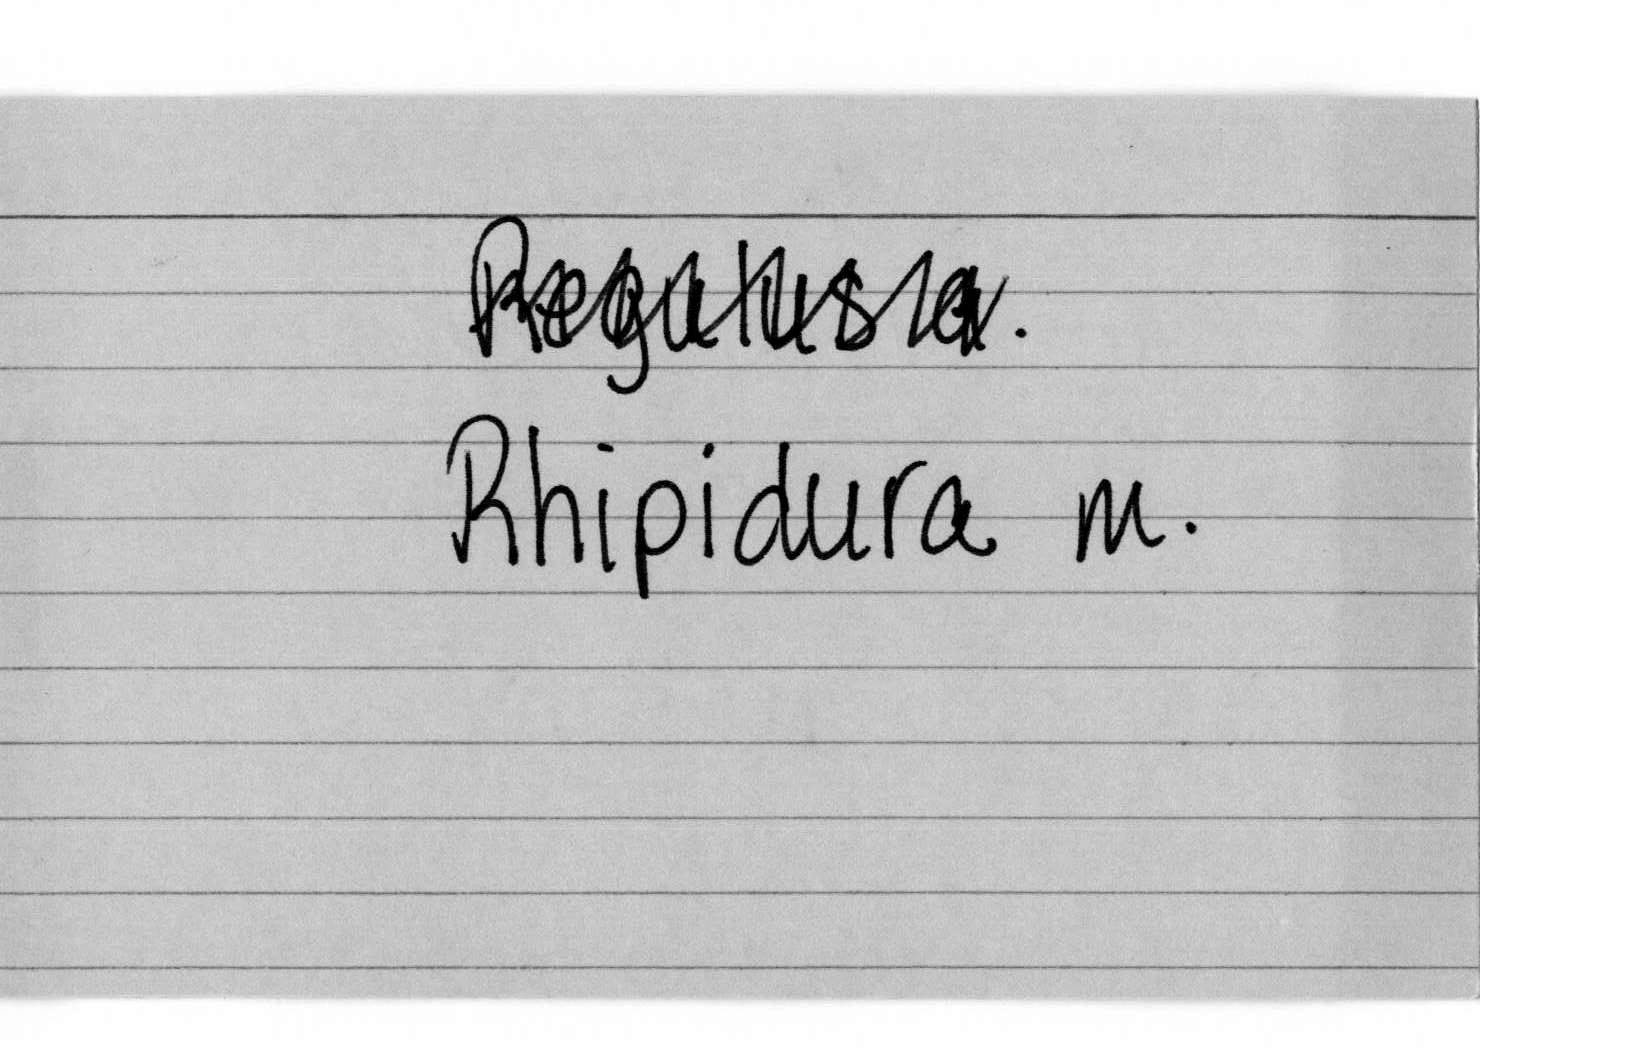 Regulus a.
Rhipidura m.